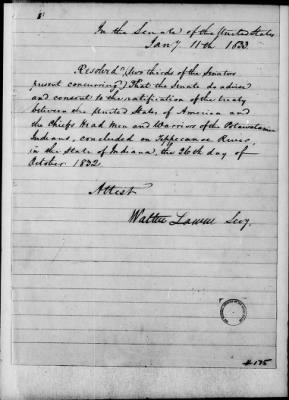 In the Senate of the United States
Jany 11th 1833.
Resolved, (two thirds of the Senators
present concurring) That the Senate do advise
and consent to the ratification of the treaty
between the United States of America and
the Chiefs Head Men and Warriors of the Potawatamie
Indians, concluded on Tippecanoe River,
in the State of Indiana, the 26th day of
October 1832.
Attest
Walter Lowrie Secy.
#175